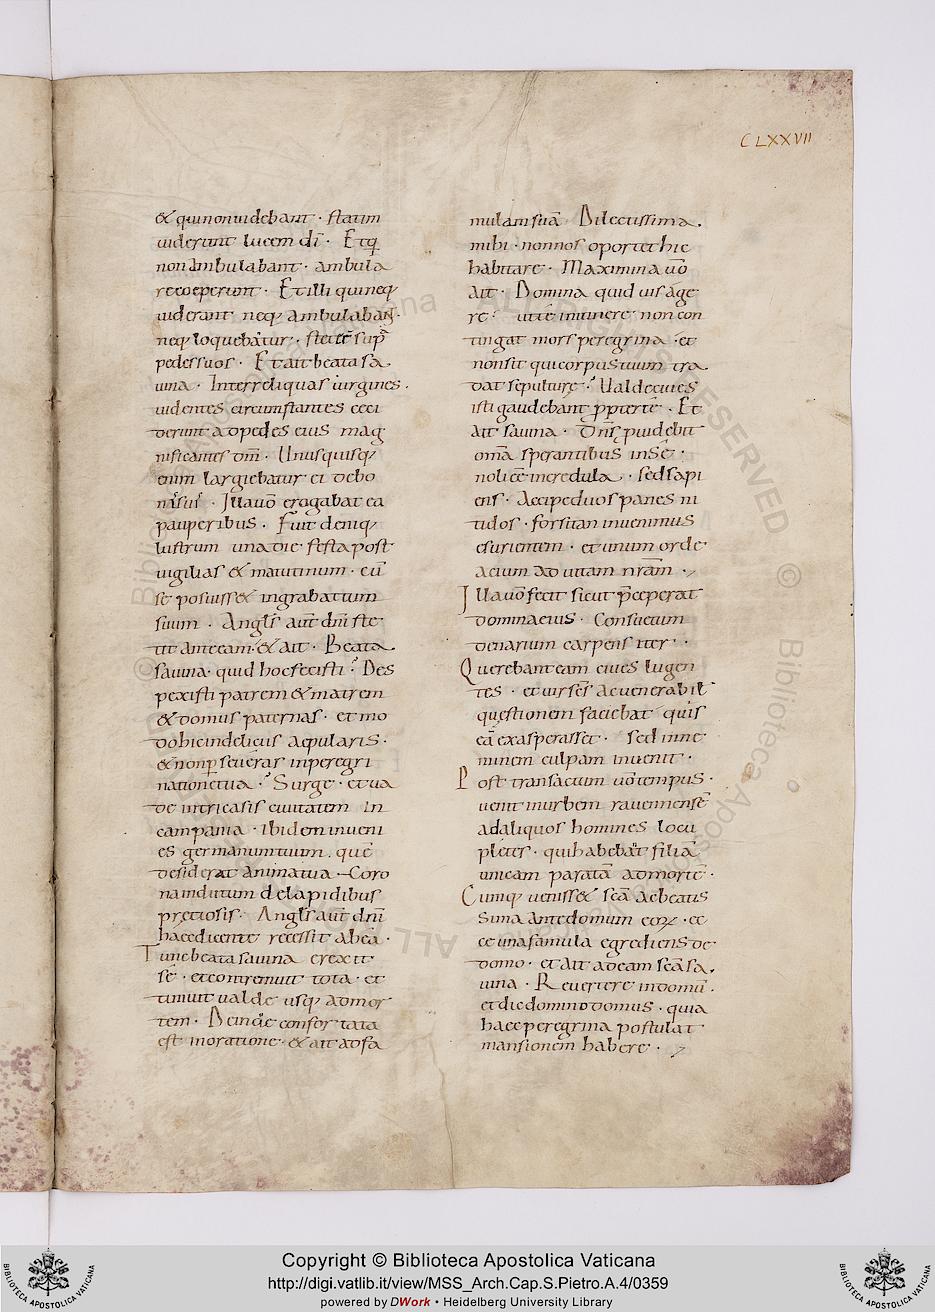 CLXXVII
& quinonuidebant · statim
uiderunt lucem dī · Etq̨
nonambulabant · ambula
receperunt · Etilli quineq;
uiderant neq; ambulabant·
neq; loquebatur · stetert sup̄
pedessuos · Etait beata sa
uina · Interreliquas uirgines ·
uidentes circumstantes ceci
derunt adpedes eius mag
nificantes dm̄ · Unusquisq;
enim largiebatur ei debo
nis suis · Illauō erogabat ea
pauperibus · Fuit deniq;
lustrum unadie festapost
uigilias & matutinum · cū
se posuiss& ingrabattum
suum · Angls aūt dn̄i ste
tit anteeam · & ait · Beata
sauina · quid hocfecisti ? Des
pexisti patrem & matrem
& domus paternas · et mo
dohicindeliciis aepularis ·
& nonp̱seueras inperegri
nationetua ·? Surge · etua
de intricassis ciuitatem in
campania · ibidem inueni
es germanumtuum · quē
desiderat animatua · Coro
naindutum delapidibus
pretiosis · Angls aūt dn̄i
haecdicente recessit abea ·
Tuncbeatasauina erexit
sē · etcontremuit tota · et
timuit ualde usq; admor
tem · Deinde confortata
est inoratione · & ait adfa
mulamsuā · Dilectissima ·
mihi · nonnos oportet hic
habitare · Maximina uō
ait · Domina quid uis age
re · ubi uis inuinere non con
tingat mors peregrina · et
nonsit quicorpustuum tra
dat sepulture ·? Ualdeciues
isti gaudebant p̱pterte · Et
ait sauina · Dn̄s puidebit
omīa sperantibus inSe ·
noli eē incredula · sedsapi
ens · Accipeduos panes ni
tidos · forsitan inuenimus
esurientem · etunum orde
acium ad uitam nram ·,
Illauō fecit sicut p̄ceperat
domnaeius · Consuetum
denarium carpens iter · ·
Querebanteam ciues lugen
tes · et uirsēs ac uenerabil
questionem faciebat quis
eā exasperasset · sed inne
minem culpam inuenit ·
Post transactum uōtempus ·
uenit inurbem rauennensē
adaliquos homines locu
pletes · quihabebat filiā
unicam paratā admortē ·
Cumq; uenisse& scā acbeatis
Sima antedomum eoꝝ · ec
ce unafamula egrediens de
domo · et ait adeam scāsa
uina · Reuertere indomū ·
etdicdominodomus · quia
haecperegrina postulat
mansionem habere · ,
Copyright © Biblioteca Apostolica Vaticana
http://digi.vatlib.it/view/MSS_Arch.Cap.S.Pietro.A.4/0359
powered by DWork • Heidelberg University Library
BIBLIOTECA APOSTOLICA VATICANA
BIBLIOTECA APOSTOLICA VATICANA